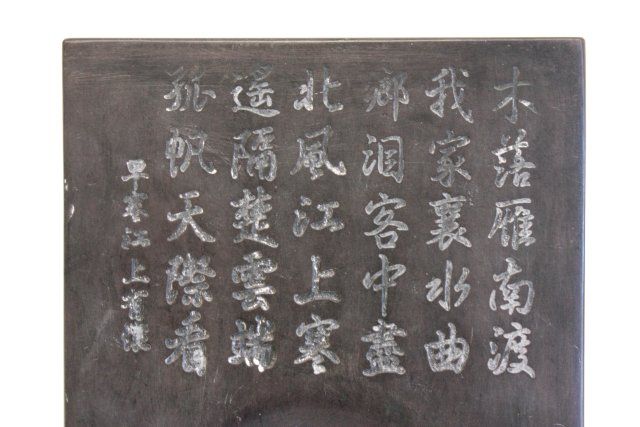 木落雁南渡
我家襄水曲
鄉泪客中盡
北風江上寒
遙隔楚雲端
孤帆天際看
早寒江上有懷